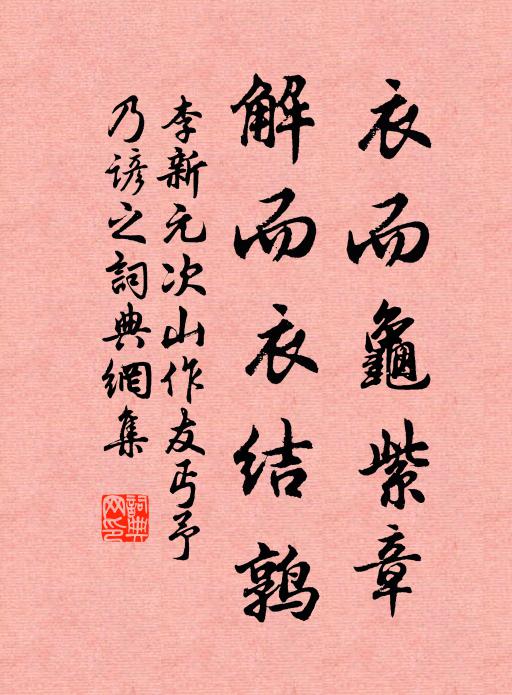 衣而龜紫章
解而衣结鹑
李新元次山作友丐予
乃谚之詞典網集
詞典网印